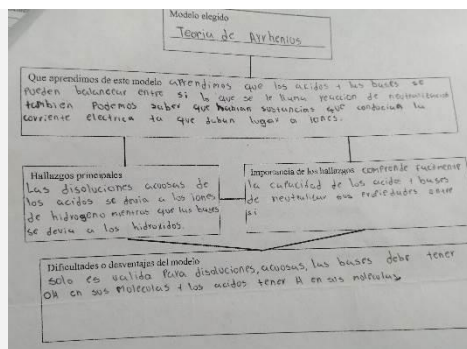 Modelo elegido
Teoria de Arrhenios
Que aprendimos de este modelo aprendimos que los acidos y las bases se
pueden balancear entre si lo que se le llama reaccion de neutralizacion
tambien Podemos saber que habian sustancias que conducian la
corriente electrica ya que daban lugar a iones.
Hallazgos principales
Las disoluciones acuosas de
los acidos se devia a los iones
de hidrogeno mientras que las bases
se devia a los hidroxidos.
Importancia de los hallazgos comprende facilmente
la capacidad de los acidos y bases
de neutralizar sus propiedades entre
si
Dificultades o desventajas del modelo
solo es valida para disoluciones, acuosas, las bases debe tener
OH en sus moleculas y los acidos tener H en sus moleculas